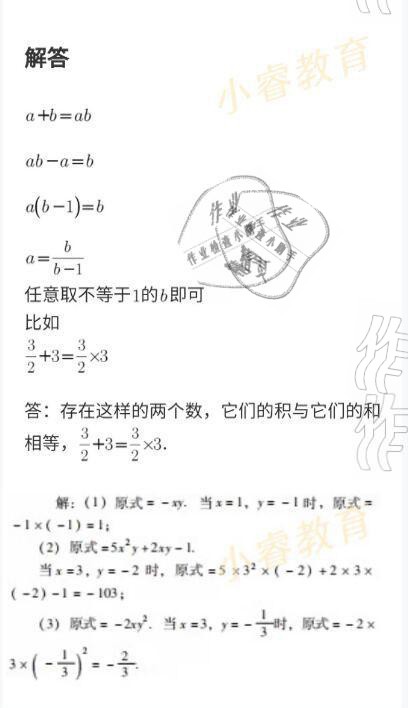 解答
小睿教育
a+b=ab
ab−a=b
a(b−1)=b
a=b/(b−1)
任意取不等于1的b即可
比如
3/2+3=3/2×3
答：存在这样的两个数，它们的积与它们的和
相等，3/2+3=3/2×3.
解：(1) 原式 = −xy. 当 x=1，y= −1 时，原式 =
−1×(−1)=1；
(2) 原式=5x²y+2xy−1.
当 x=3，y= −2 时，原式=5×3²×(−2)+2×3×
(−2)−1=−103；
小睿教育
(3) 原式= −2xy². 当 x=3，y= −1/3时，原式= −2×
3×(−1/3)²= −2/3.